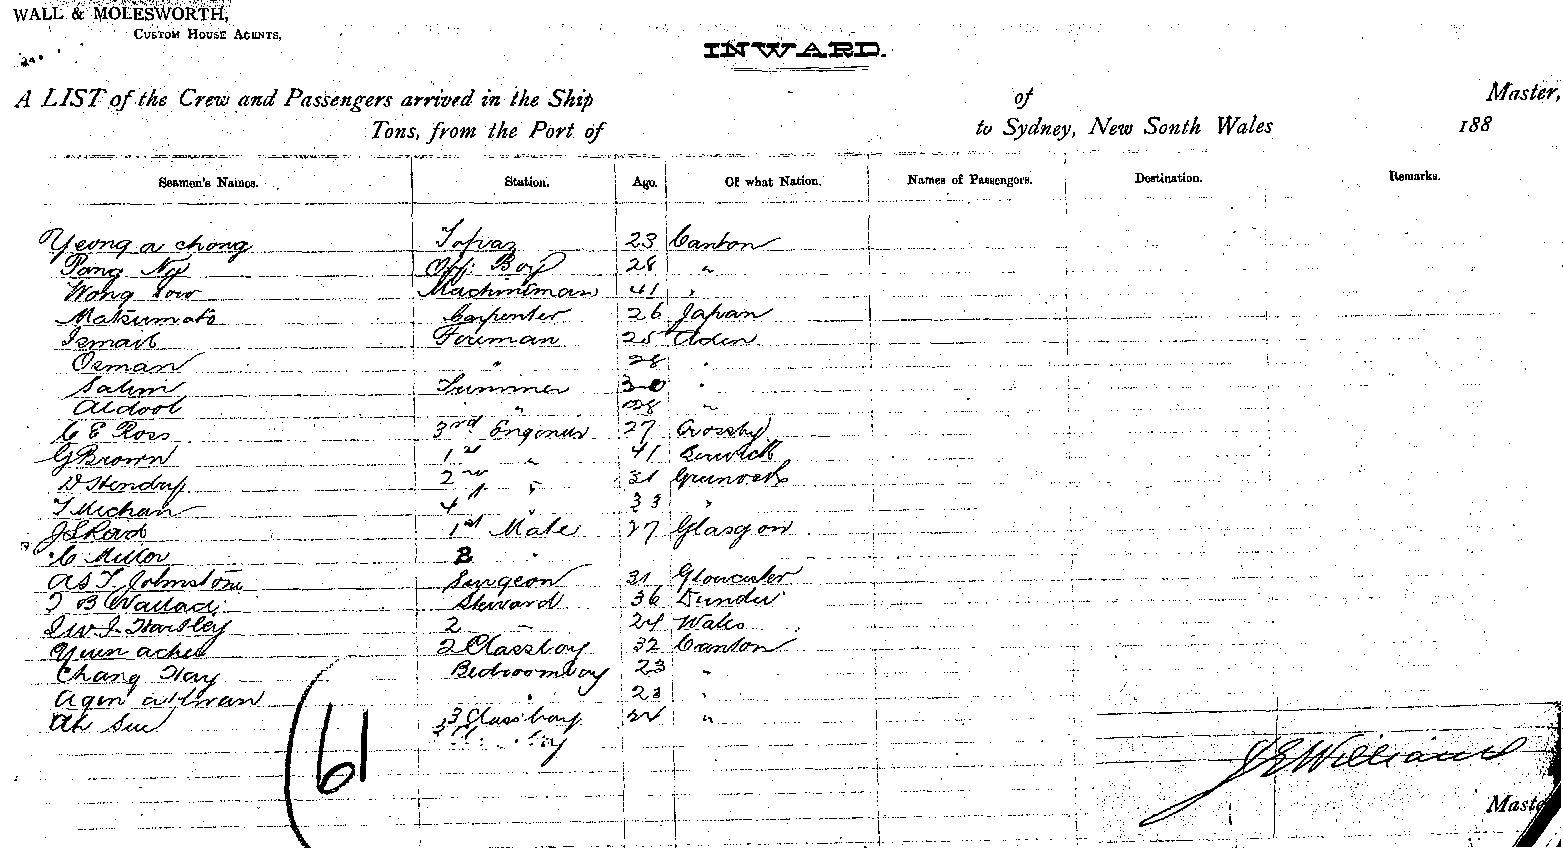 WALL & MOLESWORTH,
CUSTOM HOUSE AGENTS,
INWARD.
A LIST of the Crew and Passengers arrived in the Ship of Master,
Tons, from the Port of to Sydney, New South Wales 188
Seamen's Names. Station. Age. Of what Nation. Names of Passengers. Destination. Remarks.
Yeong a chong Topaz 23 Canton
Pang Ny Off. Boy 28 "
Wong Machineman 41 "
Matsumato Carpenter 26 Japan
Ismail Fireman 25 Aden
Osman " 28 "
Salim 30 "
" 28 "
C E Ross 3rd Engineer 27 Crossby
G Brown 1st " 41 Berwick
D 2nd " 31 Greenock
T Michan 4th " 33 "
J S 1st Mate 27 Glasgow
C 2 "
A S T Johnstone Surgeon 31 Gloucester
T B Wallace Steward 36 Dundee
J W J Hartley 2 " 24 Wales
2 Class boy 32 Canton
Chang Hay Bedroom boy 23 "
" 23 "
Ah Sue 3 Class boy 24 "
boy
61
J E Williams
Master